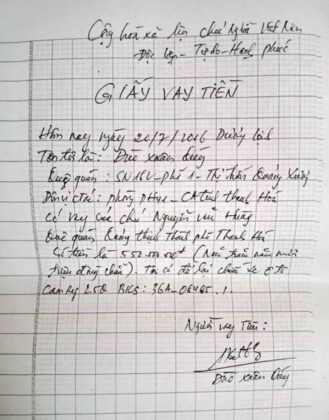 Cộng hòa xã hội chủ nghĩa Việt Nam
Độc lập - Tự do - Hạnh phúc
GIẤY VAY TIỀN
Hôm nay ngày 20/7/2016 Dương lịch
Tên tôi là: Đào Xuân
Quê quán: SN 18 - Phố 1 - Thị trấn Quảng Xương
Đơn vị c tác: phòng - CA tỉnh Thanh Hoá
Có vay của chú Nguyễn Văn Hưng
Quê quán Quảng Thịnh Thành phố Thanh Hoá
Số tiền là 550.000.000đ (Năm trăm năm mươi
triệu đồng chẵn). Tôi có để lại chiếc xe ô tô
Camry BKS: 36A - 06485.
Người vay tiền:
Đào Xuân